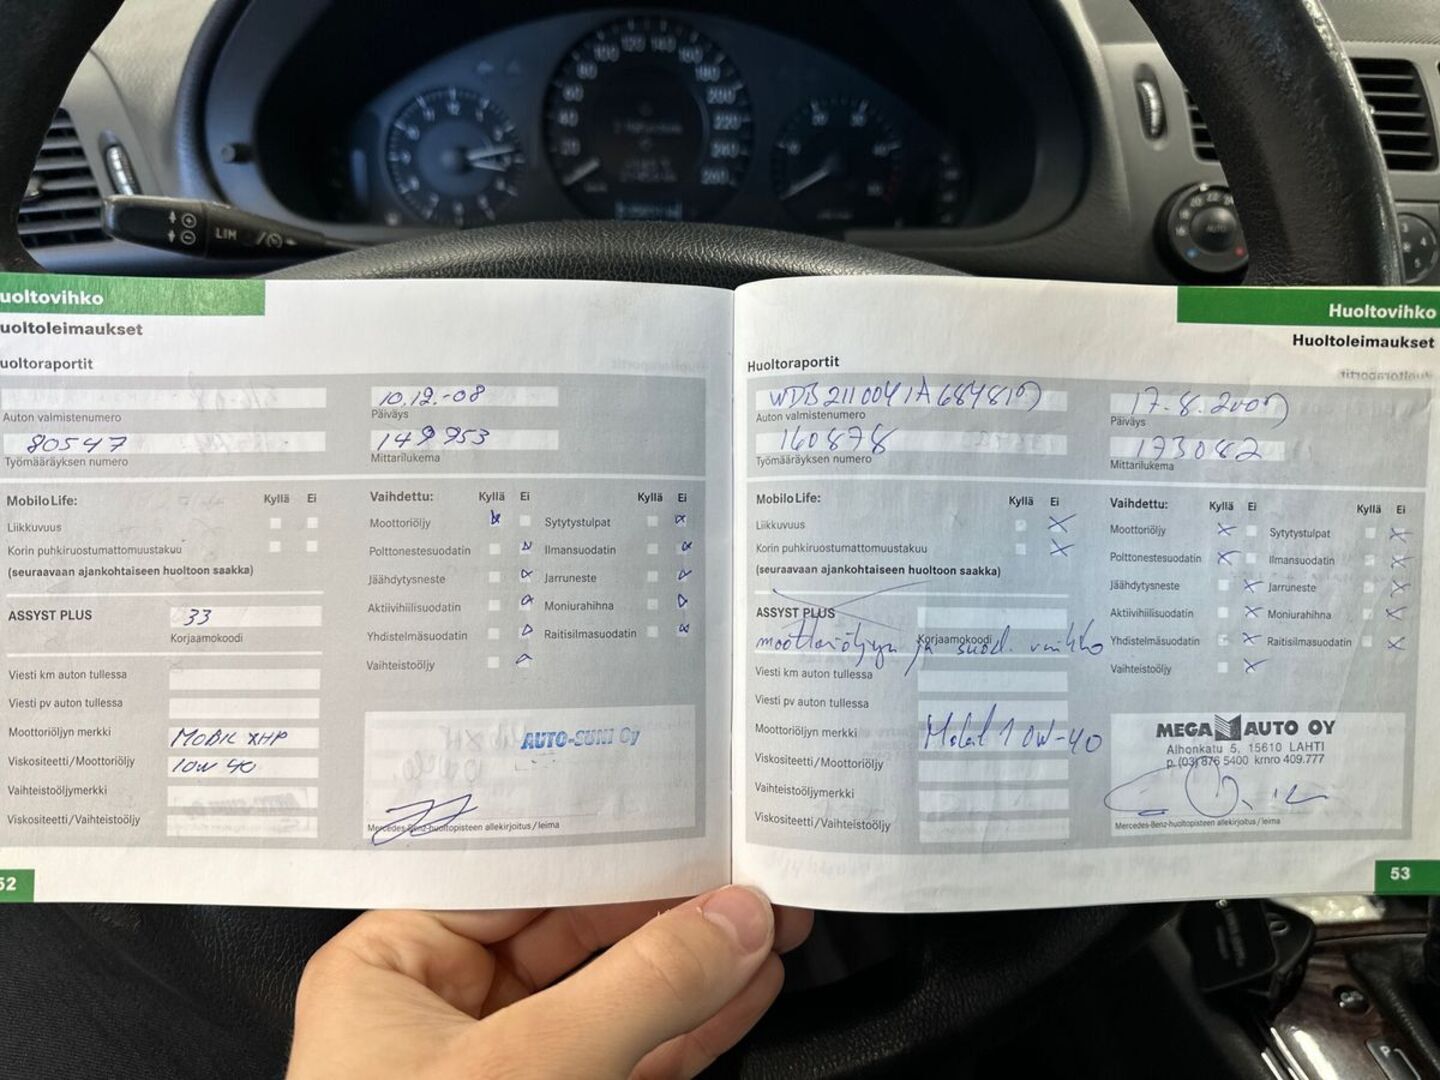 uoltovihko
uoltoleimaukset
uoltoraportit
10.12.-08
Auton valmistenumero
Päiväys
80547
149953
Työmääräyksen numero
Mittarilukema
MobiloLife:
Kyllä Ei
Liikkuvuus
Korin puhkiruostumattomuustakuu
(seuraavaan ajankohtaiseen huoltoon saakka)
ASSYST PLUS
33
Korjaamokoodi
Viesti km auton tullessa
Viesti pv auton tullessa
Moottoriöljyn merkki
MOBIL XHP
Viskositeetti/Moottoriöljy
10W 40
Vaihteistoöljymerkki
Viskositeetti/Vaihteistoöljy
Vaihdettu:
Kyllä Ei
Kyllä Ei
Moottoriöljy
Sytytystulpat
Polttonestesuodatin
Ilmansuodatin
Jäähdytysneste
Jarruneste
Aktiivihiilisuodatin
Moniurahihna
Yhdistelmäsuodatin
Raitisilmasuodatin
Vaihteistoöljy
AUTO-SUNI Oy
Mercedes-Benz-huoltopisteen allekirjoitus/leima
52
Huoltovihko
Huoltoleimaukset
Huoltoraportit
WDB2110041A684819
17.8.2009
Auton valmistenumero
Päiväys
160878
173082
Työmääräyksen numero
Mittarilukema
MobiloLife:
Kyllä Ei
Liikkuvuus
Korin puhkiruostumattomuustakuu
(seuraavaan ajankohtaiseen huoltoon saakka)
ASSYST PLUS
Korjaamokoodi
moottoriöljyn ja suod. vaihto
Viesti km auton tullessa
Viesti pv auton tullessa
Moottoriöljyn merkki
Mobil 1 0W-40
Viskositeetti/Moottoriöljy
Vaihteistoöljymerkki
Viskositeetti/Vaihteistoöljy
Vaihdettu:
Kyllä Ei
Kyllä Ei
Moottoriöljy
Sytytystulpat
Polttonestesuodatin
Ilmansuodatin
Jäähdytysneste
Jarruneste
Aktiivihiilisuodatin
Moniurahihna
Yhdistelmäsuodatin
Raitisilmasuodatin
Vaihteistoöljy
MEGA AUTO OY
Alhonkatu 5, 15610 LAHTI
p. (03) 876 5400 krnro 409.777
Mercedes-Benz-huoltopisteen allekirjoitus/leima
53
LIM
AUTO
P